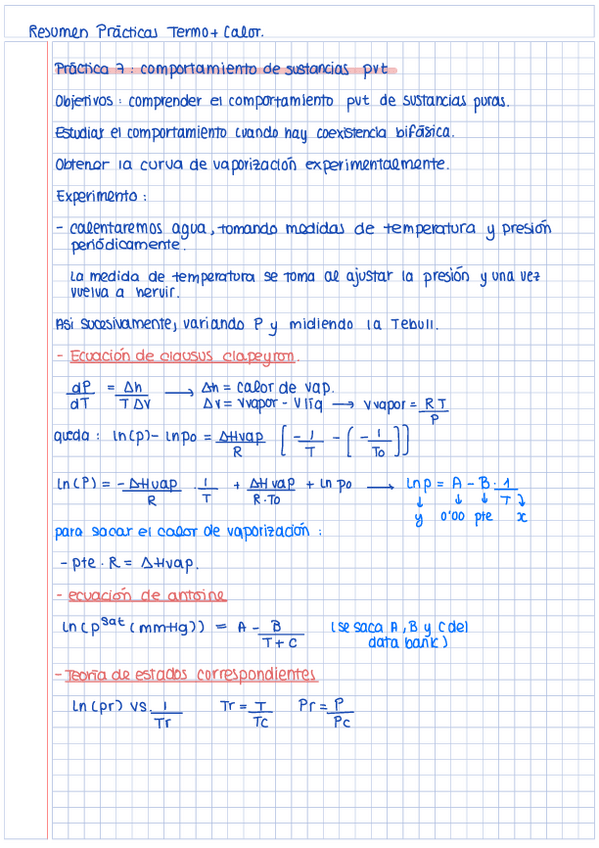 Resumen Prácticas Termo + Calor.
Práctica 7: comportamiento de sustancias pvt
Objetivos: comprender el comportamiento pvt de sustancias puras.
Estudiar el comportamiento cuando hay coexistencia bifásica.
Obtener la curva de vaporización experimentalmente.
Experimento:
- calentaremos agua, tomando medidas de temperatura y presión
periódicamente.
La medida de temperatura se toma al ajustar la presión y una vez
vuelva a hervir.
Asi sucesivamente, variando P y midiendo la Tebull.
- Ecuación de clausus clapeyron.
dP/dT = Δh/(T Δv) → Δh = calor de vap.
Δv = Vvapor - Vlíq → Vvapor = RT/P
queda: ln(p) - ln po = ΔHvap/R [-1/T - (-1/To)]
ln(P) = -ΔHvap/R · 1/T + ΔHvap/(R·To) + ln po → Ln p = A - B · 1/T
↓ ↓ ↓ ↓
y 0'00 pte x
para sacar el calor de vaporización:
- pte · R = ΔHvap.
- ecuación de antoine
ln(p^sat (mmHg)) = A - B/(T + C) (se saca A, B y C del
data bank)
- Teoría de estados correspondientes
Ln(pr) vs. 1/Tr Tr = T/Tc Pr = P/Pc